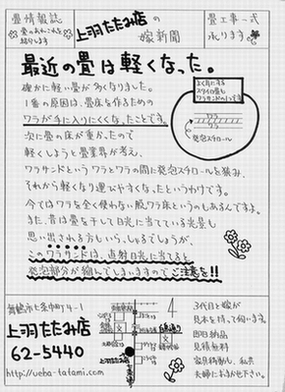 畳情報誌
上羽たたみ店の
嫁新聞
畳工事一式
承ります
最近の畳は軽くなった。
確かに軽い畳が多くなりました。
1番の原因は、畳床を作るための
ワラが手に入りにくくなったことです。
次に畳の床が重かったので
軽くしようと畳業界が考え、
ワラサンドというワラとワラの間に発泡スチロールを挟み、
それから軽くなり運びやすくなったというわけです。
今ではワラを全く使わない脱ワラ床というのもあるんですよ。
また、昔は畳を干して日光に当てている光景も
思い出される方もいらっしゃるでしょうが、
このワラサンドは、直射日光に当てると
発泡部分が縮んでしまいますのでご注意を!!
発泡スチロール
舞鶴市七条中町4-1
上羽たたみ店
62-5440
http://ueba-tatami.com
3代目と嫁が
見本を持って伺います。
即日納品
見積無料
家具移動も、私共
夫婦におまかせ下さい。